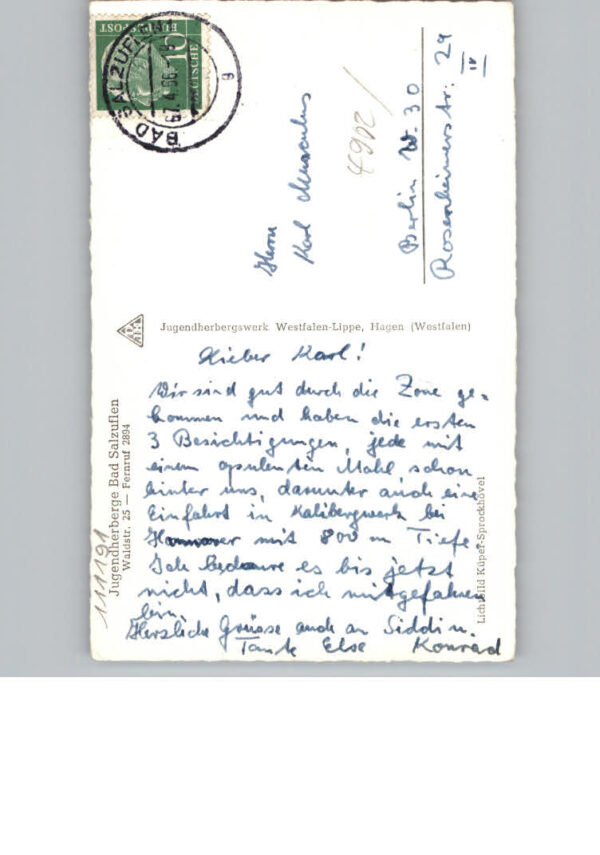 DEUTSCHE
BUNDESPOST
10
BAD SALZUFLEN
Herrn
Karl
4902/
Berlin W. 30
Rosenheimerstr. 29
IV
Jugendherbergswerk Westfalen-Lippe, Hagen (Westfalen)
Jugendherberge Bad Salzuflen
Waldstr. 25 — Fernruf 2894
111191
Lieber Karl!
Wir sind gut durch die Zone ge-
kommen und haben die ersten
3 Besichtigungen, jede mit
einem opulenten Mahl schon
hinter uns, darunter auch eine
Einfahrt in Kalibergwerk bei
Hannover mit 800 m Tiefe.
Ich bedaure es bis jetzt
nicht, dass ich mitgefahren
bin.
Herzliche Grüsse auch an Siddi u.
Tante Else Konrad
Lichtbild Küper-Sprockhövel